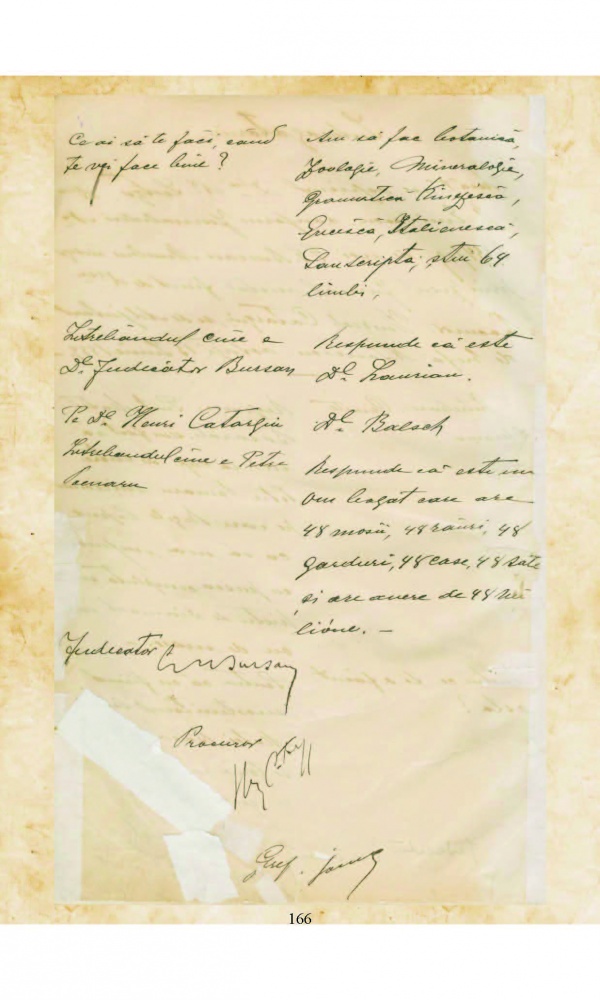 Ce ai să te faci, când
te vei face bine?
Am să fac botanică,
Zoologie, Mineralogie,
Gramatică Kinezească,
Grecească, Italienească,
Sanscripta; știu 64
limbi,
Întrebându-l cine e
Dl. Judecător Bursan
Respunde că este
Dl. Laurian.
Pe Dl. Henri Catargiu
Dl. Balsch
Întrebându-l cine e Petre
Respunde că este un
om bogat care are
48 moșii, 48 râuri, 48
garduri, 48 case, 48 sate
și are avere de 48 mi
lióne. —
Judecător Bursan
Procuror
Gref.
166